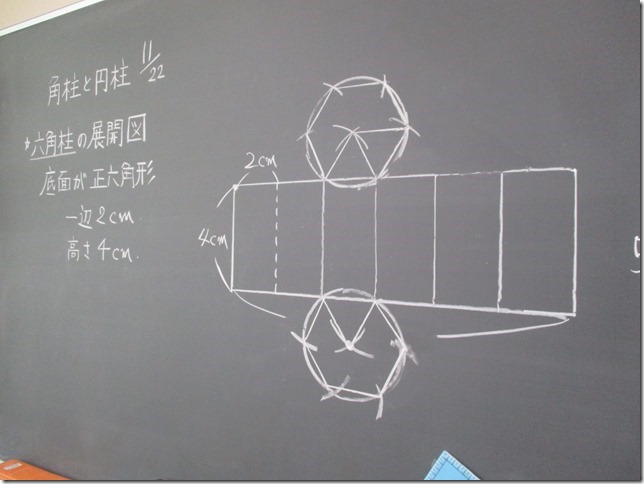 角柱と円柱 11/22
*六角柱の展開図
底面が正六角形
一辺2cm.
高さ4cm.
2cm
4cm